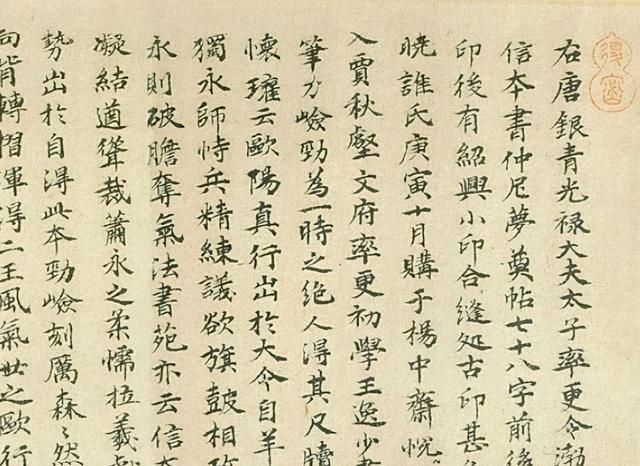 右唐銀青光禄大夫太子率更令渤
信本書仲尼夢奠帖七十八字前後
印後有紹興小印合縫処古印甚
曉誰氏庚寅十月購于楊中齋恱
入賈秋壑文府率更初學王逸少書
筆力嶮勁為一時之絶人得其尺牘
懐瓘云歐陽真行出於大令自羊
獨永師恃兵精練議欲旗鼓相攻
永則破膽奪氣法書苑亦云信本
凝結遒聳裁蕭永之柔懦拉羲
勢出於自得此本勁嶮刻厲森〻然
向背轉摺渾得二王風氣世之歐行